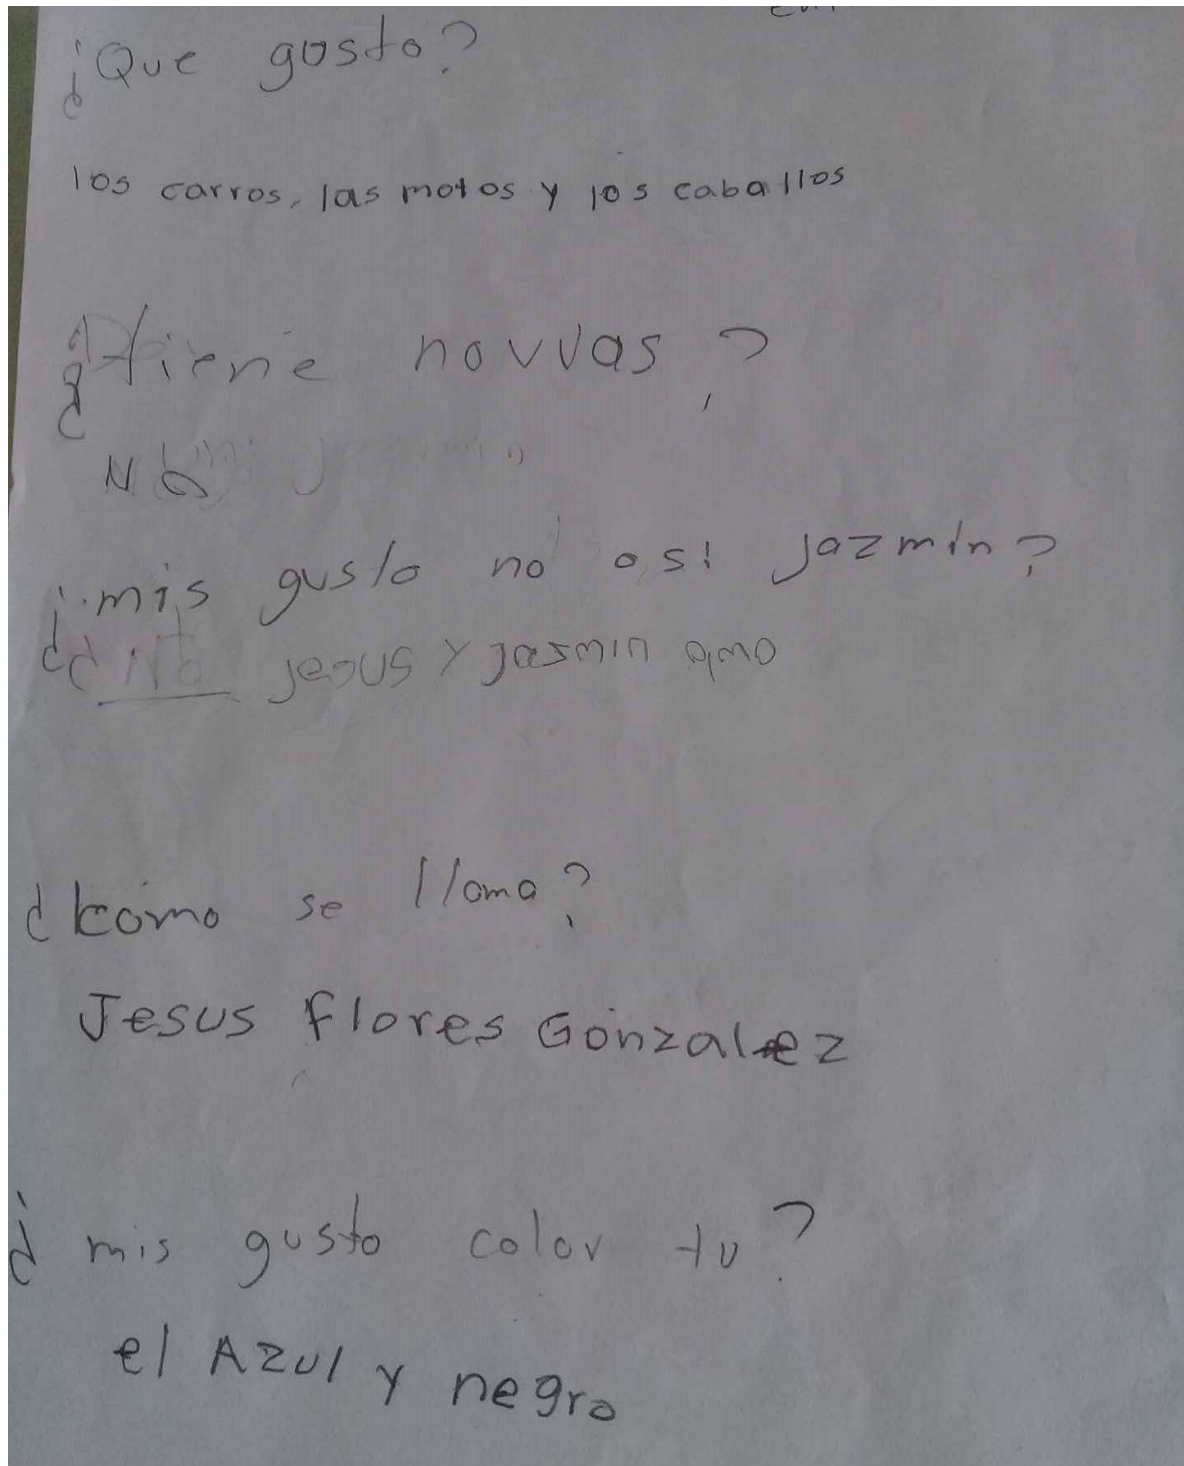 ¿Que gusto?
los carros, las motos y los caballos
¿tiene novvas?
No
¿mis gusto no o si jazmin?
No jesus y jasmin amo
¿komo se llama?
Jesus flores Gonzalez
¿mis gusto color tu?
el Azul y negro